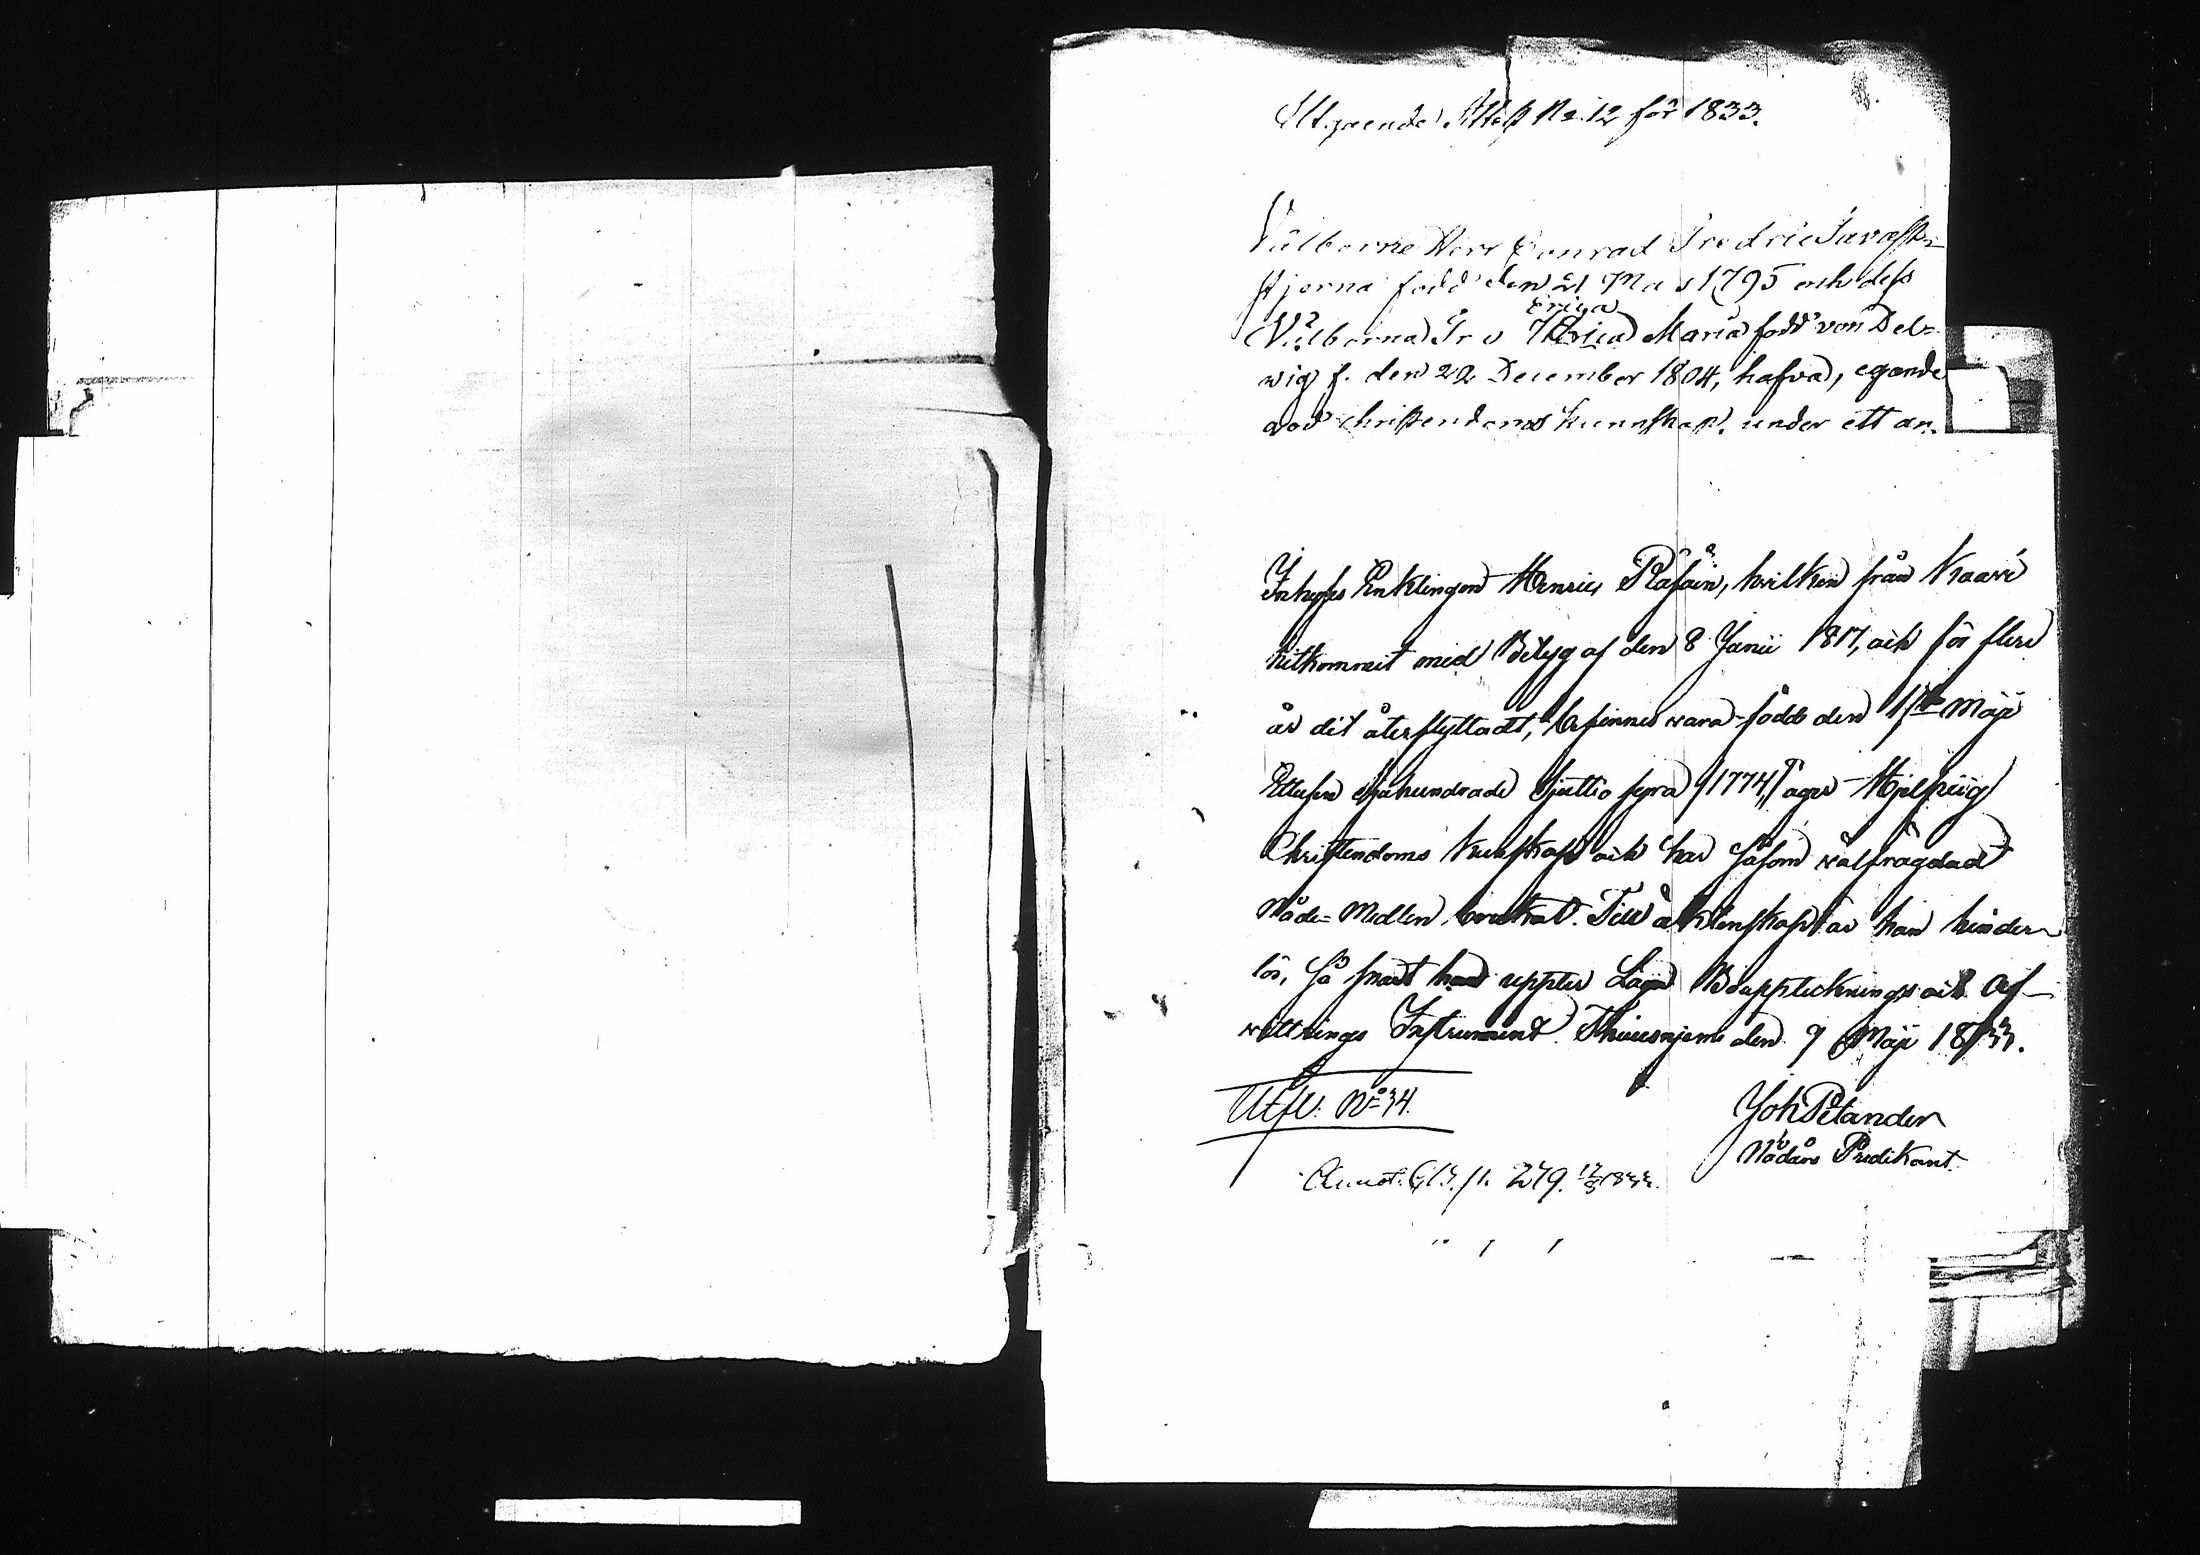 Utgaende Attest No 12 för 1833.
Välborne Herr Conrad Fredric Tavast-
stjerna född den 21 Maj 1795 och dess
Eriga
Välborna Fru Ulrica Maria född von Del-
wig f. den 22 December 1804, hafva, egande
god christendoms kunnskap, under ett an-
Inhyses Enklingen Henric Räsäin, hvilken från Kaavi
hitkommit med Betyg af den 8 Junii 1817, och för flere
år dit återflyttadt, befinnes vara född den 1ste Maji
Ettusen sjuhundrade sjuttio fyra (1774), äger Hjelpelig
Christendoms kunskap och har såsom välfrägdad
Nåde-Medlen brukat. Till äktenskap är han hinder-
lös, så snart han uppter Laga Bouppteknings och Af-
wittrings Instrument. Thuusnjemi den 9 Maji 1833.
Utfl: No 34.
Joh Petander
Nådårs Predikant.
Annot. 613. p. 279. 12/8 1833.